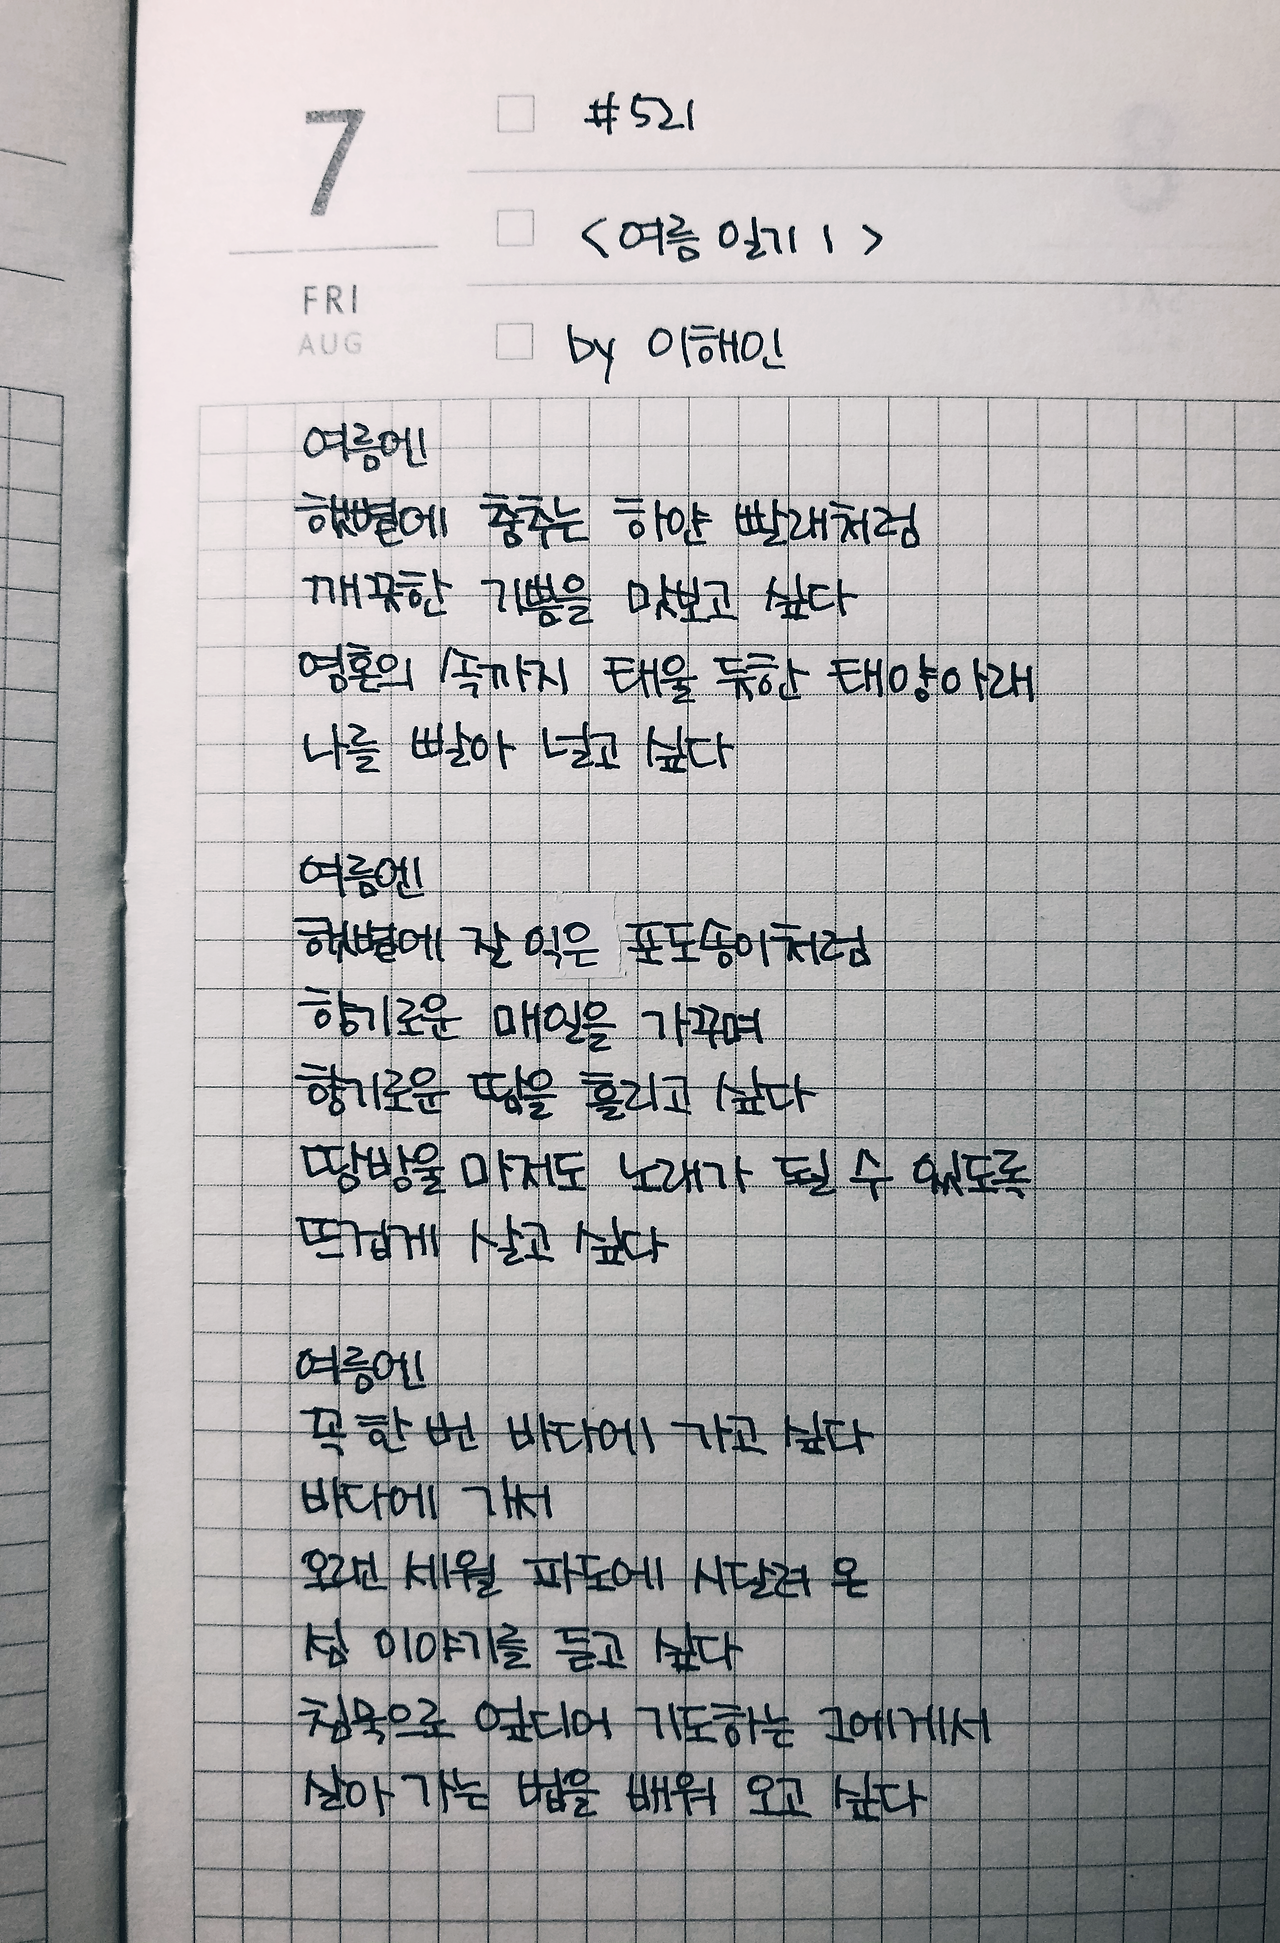 7
FRI
AUG
#521
<여름 일기 1>
by 이해인
여름엔
햇볕에 춤추는 하얀 빨래처럼
깨끗한 기쁨을 맛보고 싶다
영혼의 속까지 태울 듯한 태양아래
나를 빨아 널고 싶다
여름엔
햇볕에 잘 익은 포도송이처럼
향기로운 매일을 가꾸며
향기로운 땀을 흘리고 싶다
땀방울 마저도 노래가 될 수 있도록
뜨겁게 살고 싶다
여름엔
꼭 한 번 바다에 가고 싶다
바다에 가서
오랜 세월 파도에 시달려 온
섬 이야기를 듣고 싶다
침묵으로 엎디어 기도하는 그에게서
살아 가는 법을 배워 오고 싶다